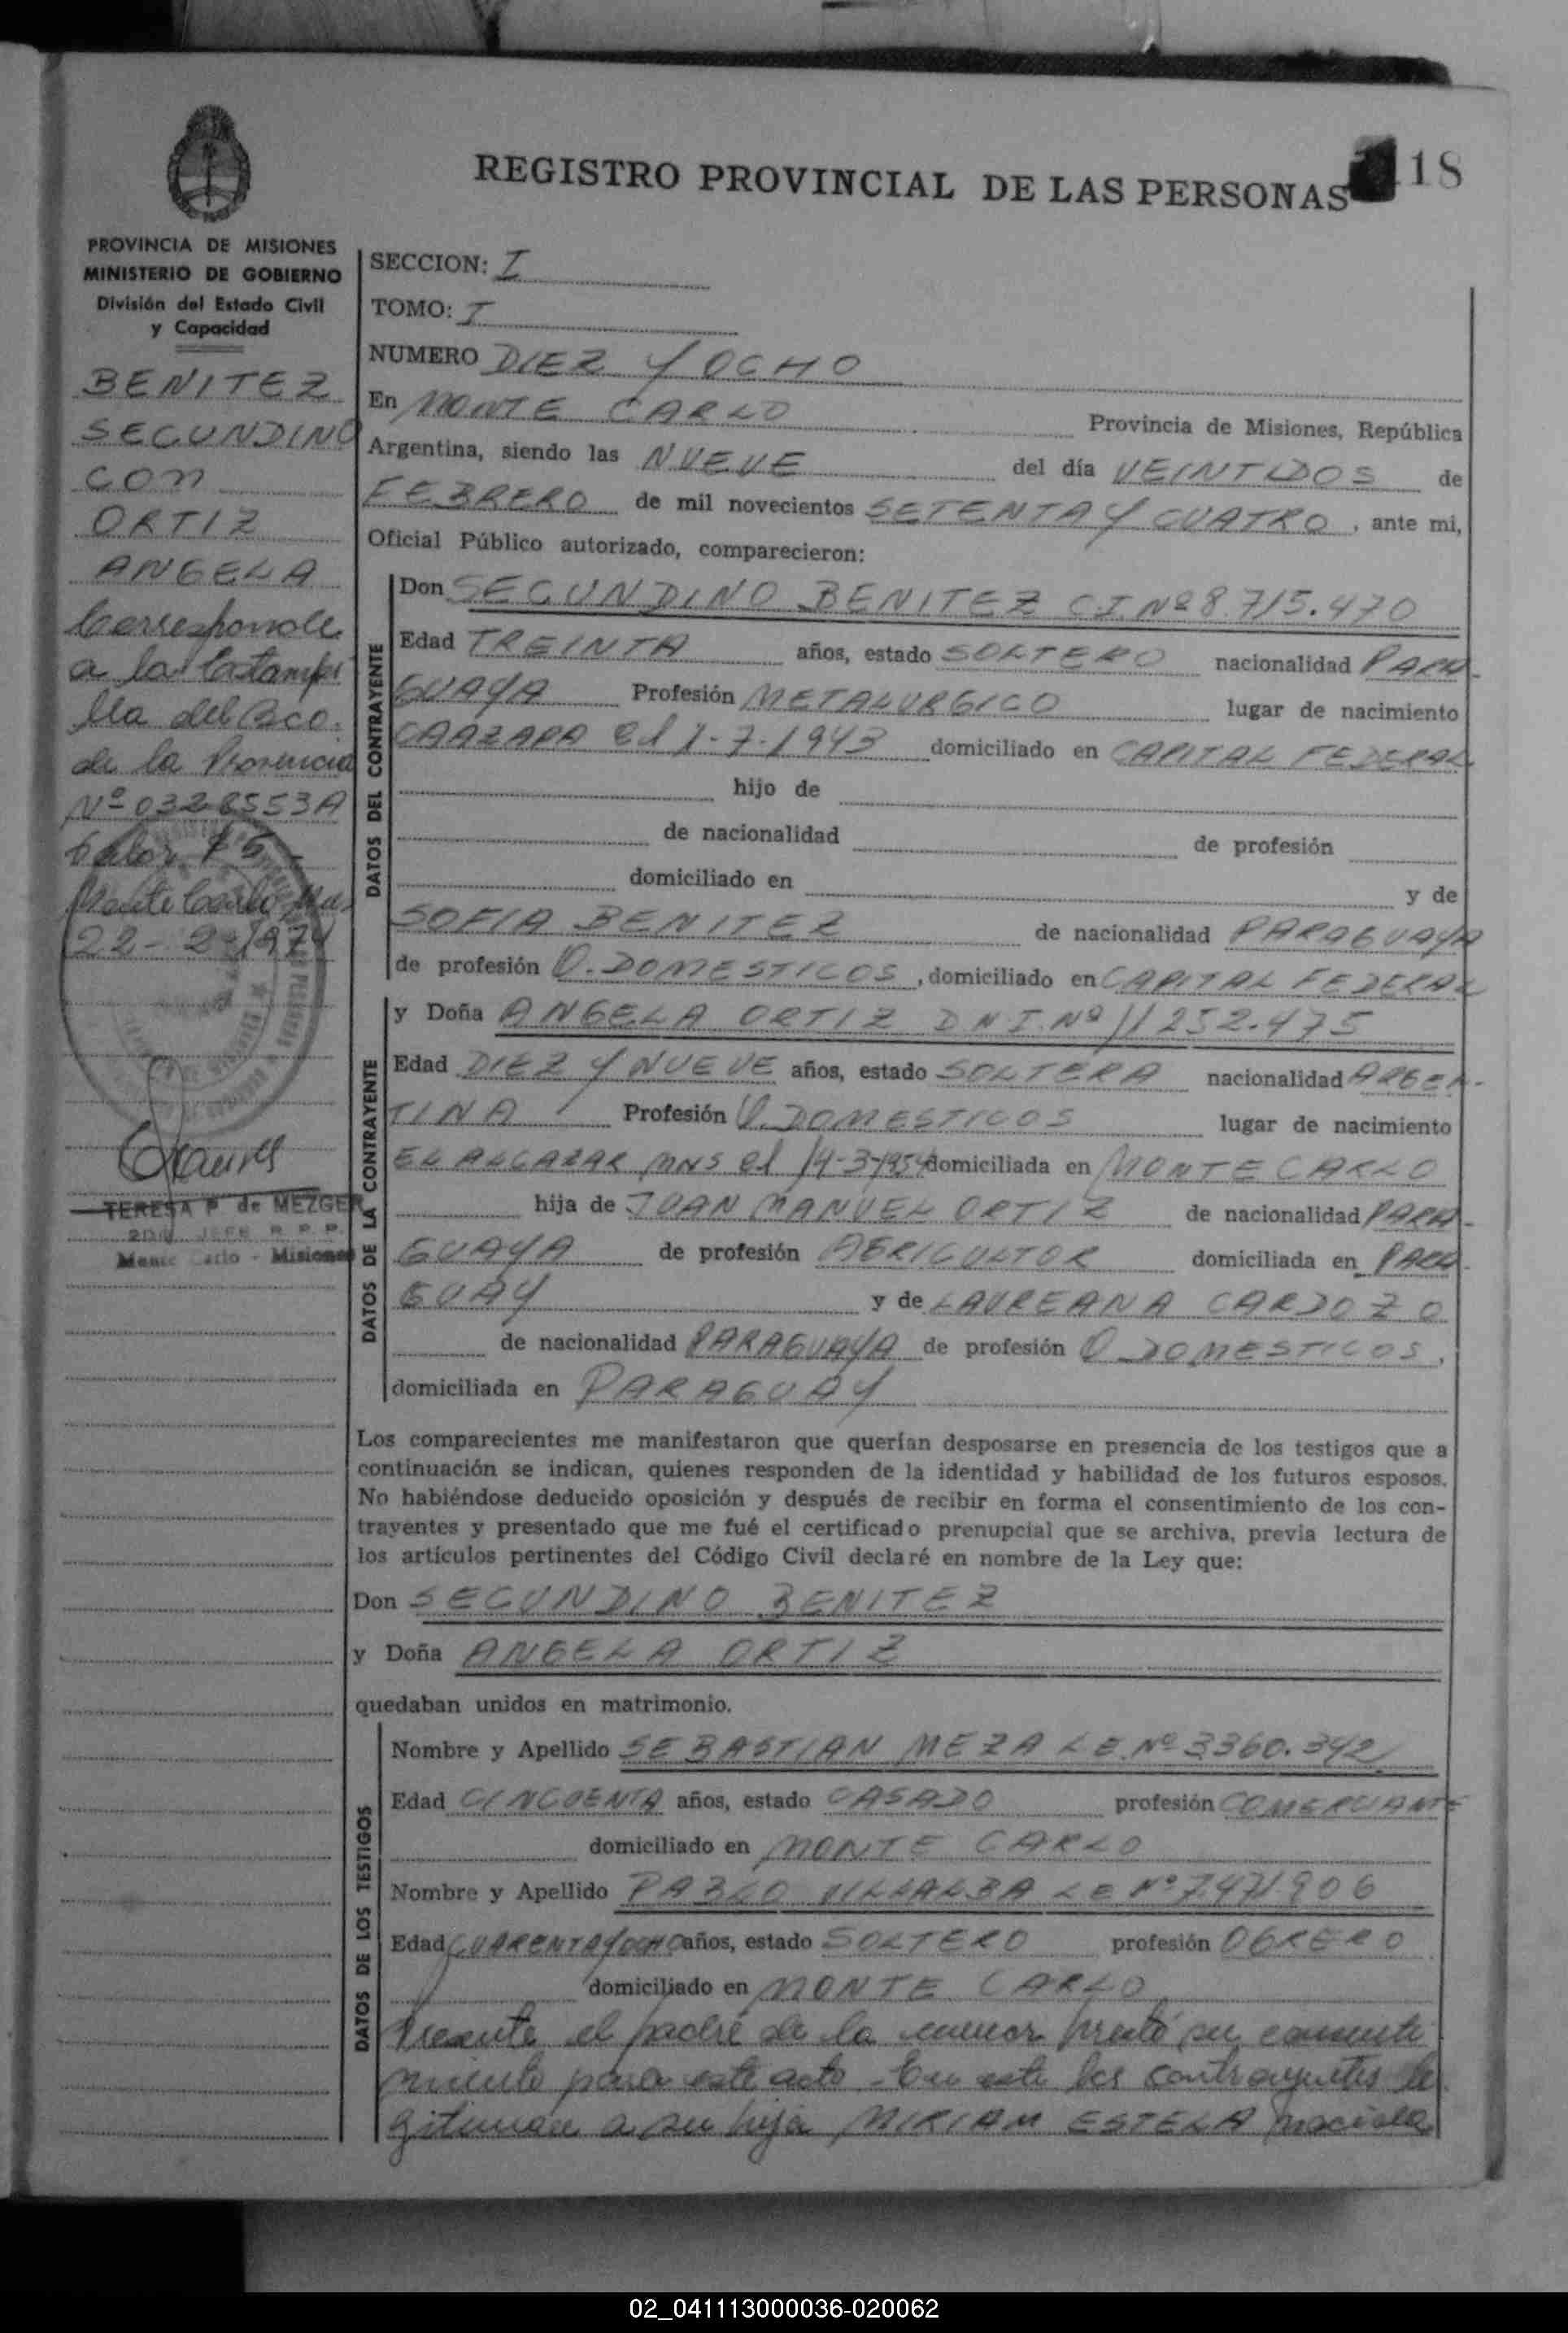 REGISTRO PROVINCIAL DE LAS PERSONAS 18
PROVINCIA DE MISIONES
MINISTERIO DE GOBIERNO
División del Estado Civil
y Capacidad
BENITEZ
SEGUNDINO
con
ORTIZ
ANGELA
Corresponde
a la Estampi
lla del Bco.
de la Provincia
Nº 0328553A
Valor $5
Monte Carlo, Mns.
22-2-1974
TERESA P. de MEZGER
JEFE R. P. P.
Monte Carlo - Misiones
SECCION: I
TOMO: I
NUMERO DIEZ Y OCHO
En MONTE CARLO Provincia de Misiones, República
Argentina, siendo las NUEVE del día VEINTIDOS de
FEBRERO de mil novecientos SETENTA Y CUATRO, ante mi,
Oficial Público autorizado, comparecieron:
DATOS DEL CONTRAYENTE
Don SEGUNDINO BENITEZ C.I. Nº 8.715.470
Edad TREINTA años, estado SOLTERO nacionalidad PARA-
GUAYA Profesión METALURGICO lugar de nacimiento
CAAZAPA el 1-7-1943 domiciliado en CAPITAL FEDERAL
hijo de
de nacionalidad de profesión
domiciliado en y de
SOFIA BENITEZ de nacionalidad PARAGUAYA
de profesión Q. DOMESTICOS, domiciliado en CAPITAL FEDERAL
DATOS DE LA CONTRAYENTE
y Doña ANGELA ORTIZ D N I. Nº 11252.475
Edad DIEZ Y NUEVE años, estado SOLTERA nacionalidad ARGEN-
TINA Profesión Q. DOMESTICOS lugar de nacimiento
EL ALCAZAR MNS el 14-3-1954 domiciliada en MONTE CARLO
hija de JUAN MANUEL ORTIZ de nacionalidad PARA-
GUAYA de profesión AGRICULTOR domiciliada en PARA-
GUAY y de LAUREANA CARDOZO
de nacionalidad PARAGUAYA de profesión Q DOMESTICOS,
domiciliada en PARAGUAY
Los comparecientes me manifestaron que querían desposarse en presencia de los testigos que a
continuación se indican, quienes responden de la identidad y habilidad de los futuros esposos.
No habiéndose deducido oposición y después de recibir en forma el consentimiento de los con-
trayentes y presentado que me fué el certificado prenupcial que se archiva, previa lectura de
los artículos pertinentes del Código Civil declaré en nombre de la Ley que:
Don SEGUNDINO BENITEZ
y Doña ANGELA ORTIZ
quedaban unidos en matrimonio.
DATOS DE LOS TESTIGOS
Nombre y Apellido SEBASTIAN MEZA L E. Nº 3360.342
Edad CINCUENTA años, estado CASADO profesión COMERCIANTE
domiciliado en MONTE CARLO
Nombre y Apellido PABLO VILLALBA L E Nº 7.471.906
Edad CUARENTA Y OCHO años, estado SOLTERO profesión OBRERO
domiciliado en MONTE CARLO
Presente el padre de la menor prestó su consenti
miento para este acto. En este los contrayentes le
gitiman a su hija MIRIAM ESTELA nacida
02_041113000036-020062